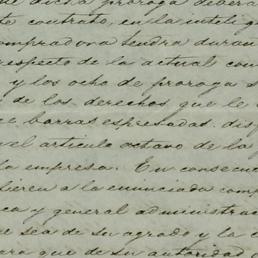 que dicha proroga debera
te contrato, en la intelig
ompradora tendra duran
respecto de la actual com
y los ocho de proroga s
de los derechos que le
ce barras espresadas, dis
el articulo octavo de la
la empresa. En consecue
fieren a la enunciada comp
ca y general administrac
e sea de su agrado y la
era que de su autoridad